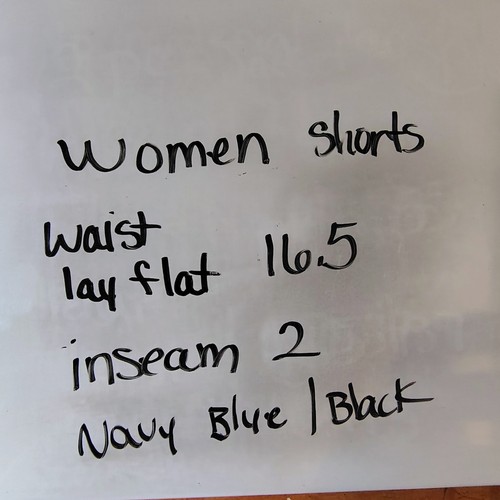 Women Shorts
Waist
lay flat 16.5
inseam 2
Navy Blue | Black